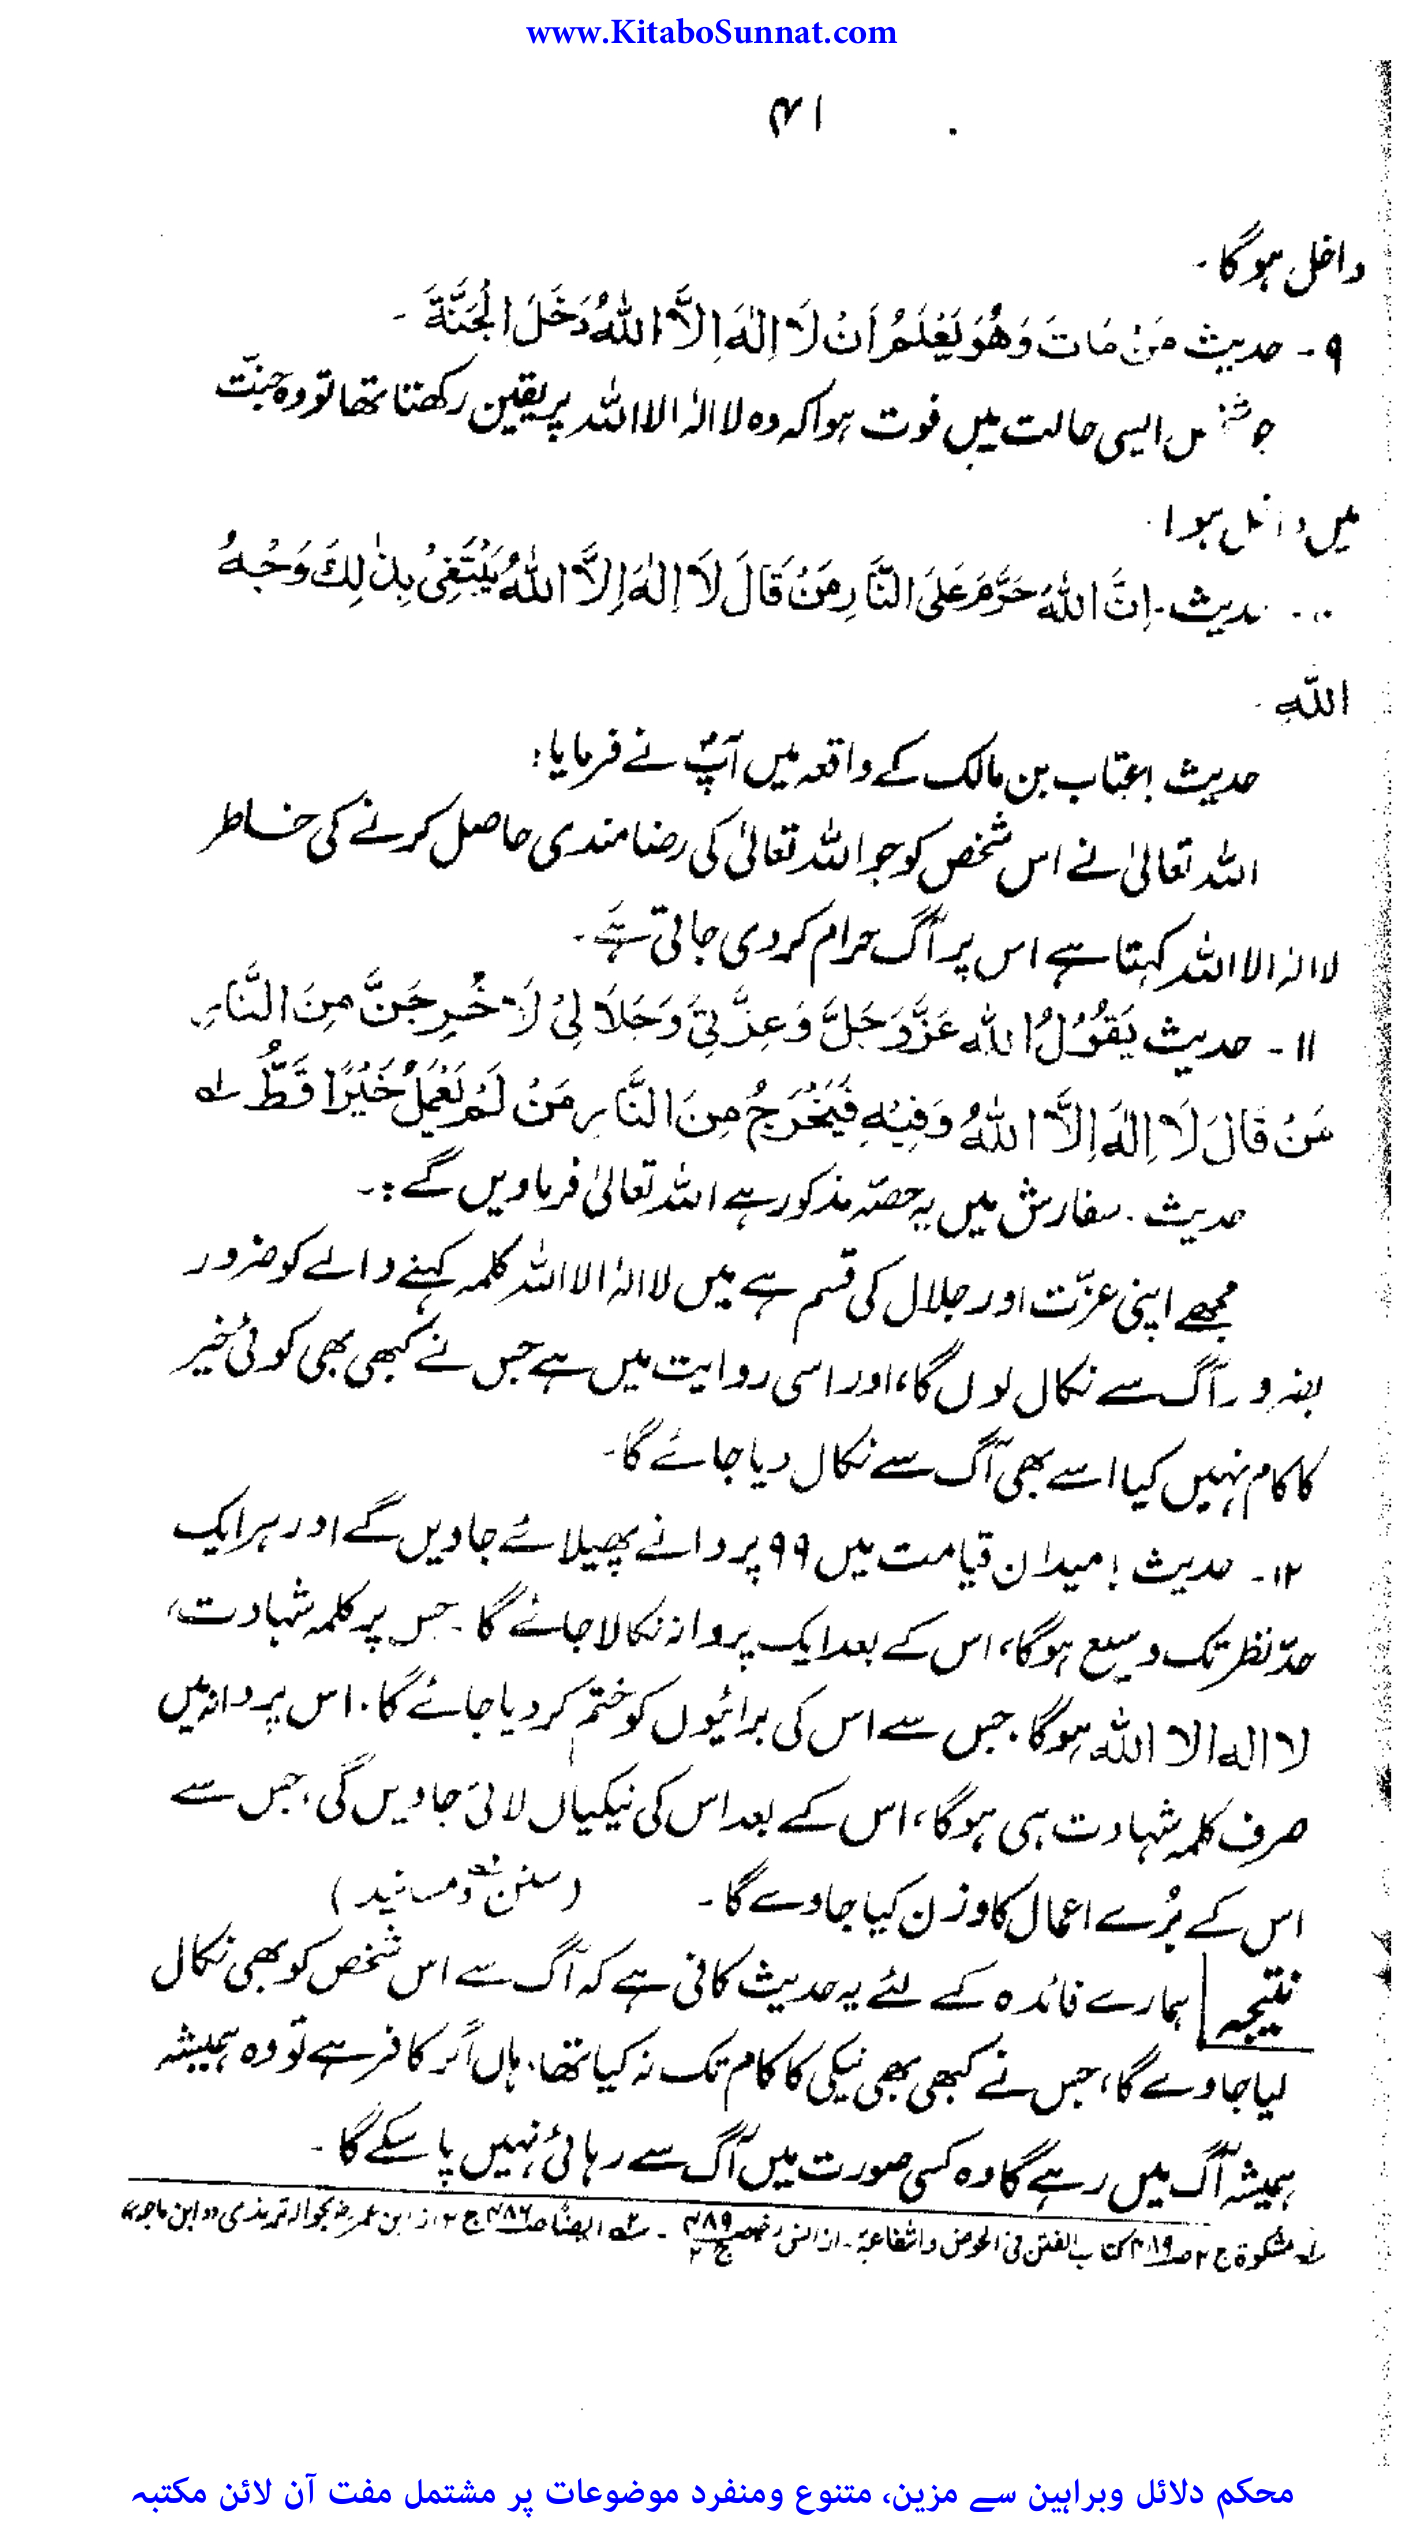 www.KitaboSunnat.com
۴۱
داخل ہوگا۔
۹۔ حدیث مَنْ مَاتَ وَهُوَ يَعْلَمُ اَنْ لَا اِلٰهَ اِلَّا اللهُ دَخَلَ الْجَنَّةَ ۔
ایسی حالت میں فوت ہوا کہ وہ لا الٰہ الا اللہ پر یقین رکھتا تھا تو وہ جنّت
میں ہوا
اِنَّ اللهَ حَرَّمَ عَلَى النَّارِ مَنْ قَالَ لَا اِلٰهَ اِلَّا اللهُ يَبْتَغِىْ بِذٰلِكَ وَجْهُ
اللهِ ۔
حدیث : عتاب بن مالک کے واقعہ میں آپؐ نے فرمایا:
اللہ تعالیٰ نے اس شخص کو جو اللہ تعالیٰ کی رضا مندی حاصل کرنے کی خاطر
لا الہٰ الا اللہ کہتا ہے اس پر آگ حرام کر دی جاتی ہے۔
۱۱۔ حدیث يَقُوْلُ اللهِ عَزَّوَجَلَّ وَعِزَّتِىْ وَجَلَالِىْ لَاُخْرِجَنَّ مِنَ النَّارِ
مَنْ قَالَ لَا اِلٰهَ اِلَّا اللهُ وَفِيْهِ فَيَخْرَجُ مِنَ النَّارِ مَنْ لَمْ يَعْمَلْ خَيْرًا قَطُّ ؎۱
حدیث ۔ سفارش میں یہ حصّہ مذکور ہے اللہ تعالیٰ فرماویں گے :۔
مجھے اپنی عزّت اور جلال کی قسم ہے میں لا الہٰ الا اللہ کلمہ کہنے والے کو ضرور
بضرور آگ سے نکال لوں گا، اور اسی روایت میں ہے جس نے کبھی بھی کوئی خیر
کا کام نہیں کیا اسے بھی آگ سے نکال دیا جائے گا۔
۱۲۔ حدیث : میدان قیامت میں ۹۹ پروانے پھیلائے جاویں گے اور ہر ایک
حدّ نظر تک وسیع ہوگا، اس کے بعد ایک پروانہ نکالا جائے گا ۔ جس پر کلمہ شہادت،
لا الہ الا اللہ ہوگا۔ جس سے اس کی برائیوں کو ختم کر دیا جائے گا۔ اس پروانہ میں
صرف کلمہ شہادت ہی ہوگا، اس کے بعد اس کی نیکیاں لائی جاویں گی، جس سے
اس کے بُرے اعمال کا وزن کیا جاوے گا۔ (سنن؎۲ و مسانید)
نتیجہ ہمارے فائدہ کے لئے یہ حدیث کافی ہے کہ آگ سے اس شخص کو بھی نکال
لیا جاوے گا، جس نے کبھی بھی نیکی کا کام تک نہ کیا تھا۔ ہاں اگر کافر ہے تو وہ ہمیشہ
ہمیشہ آگ میں رہے گا وہ کسی صورت میں آگ سے رہائی نہیں پا سکے گا۔
؎۱ مشکوٰۃ ج ۲ کتاب الفتن فی الحوض والشفاعۃ۔ از انس رض ص ۴۸۹ ج ۲ ۔ ؎۲ ایضًا ص ۴۸۶ ج ۲ از ابن عمر رض بحوالہ ترمذی و ابن ماجہ
محکم دلائل وبراہین سے مزین، متنوع ومنفرد موضوعات پر مشتمل مفت آن لائن مکتبہ